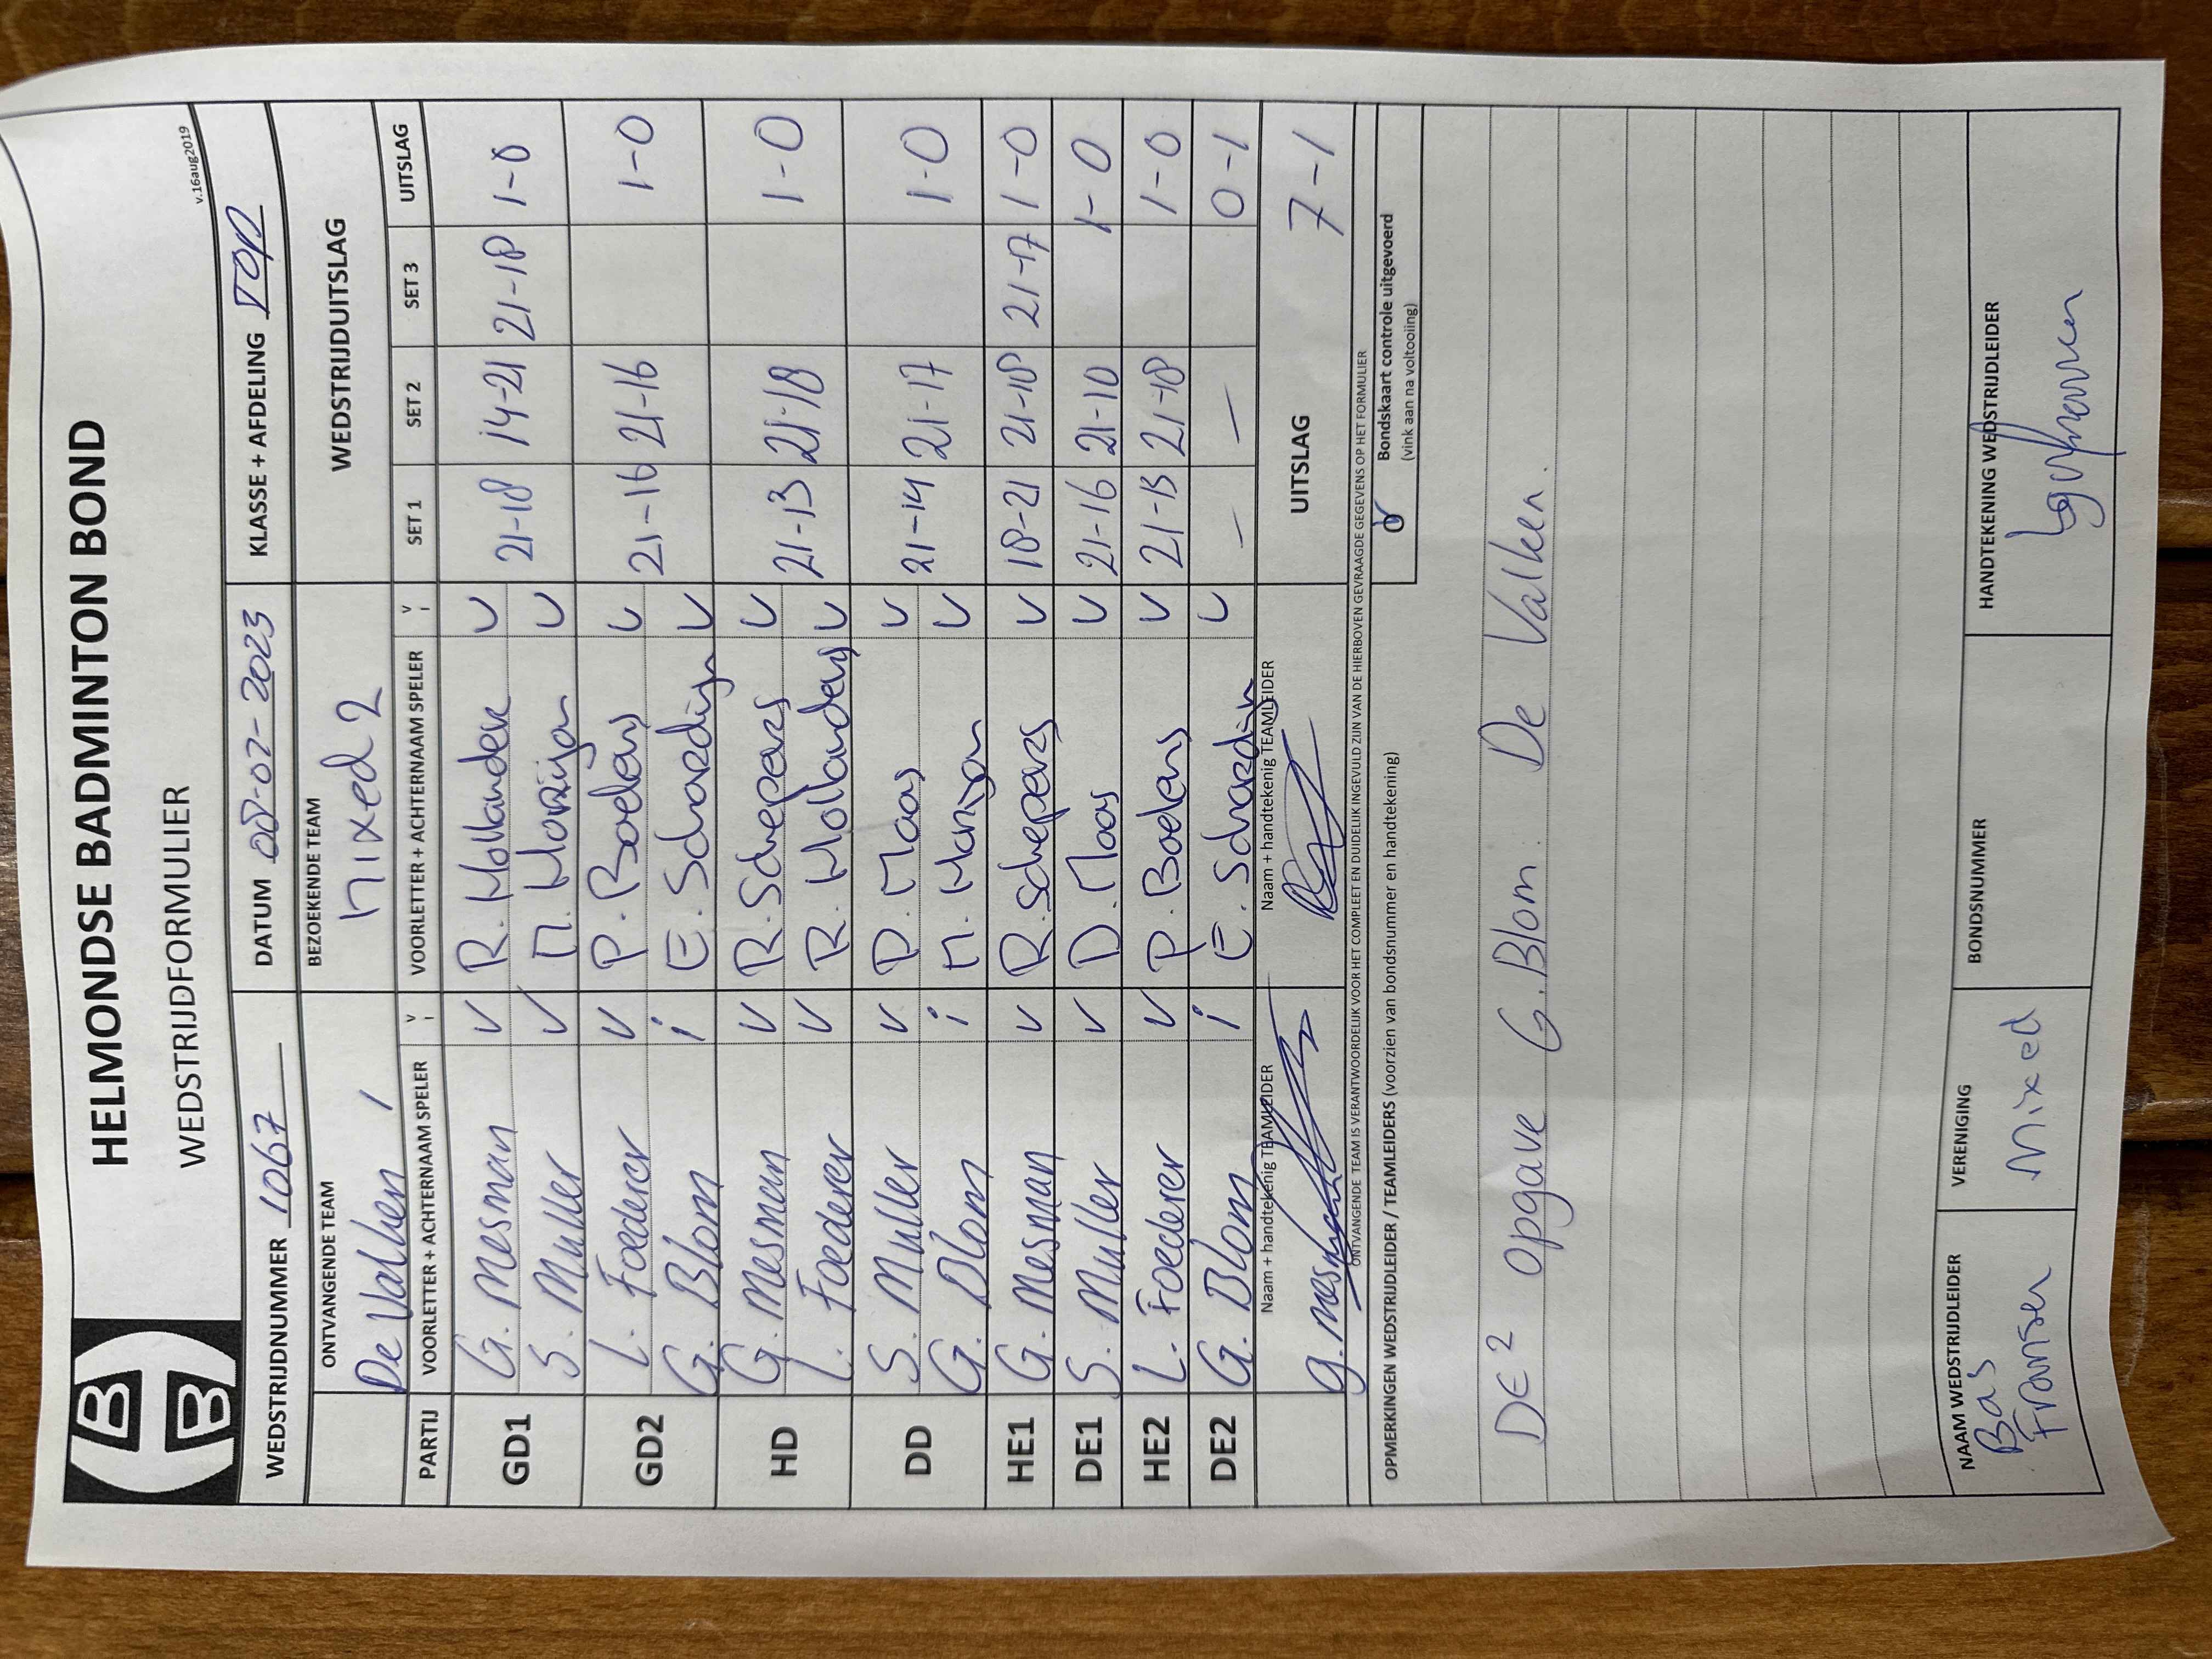 HBB
HELMONDSE BADMINTON BOND
WEDSTRIJDFORMULIER
v.16aug2019
WEDSTRIJDNUMMER 1067 DATUM 08-02-2023 KLASSE + AFDELING TOP
ONTVANGENDE TEAM BEZOEKENDE TEAM WEDSTRIJDUITSLAG
De Valken 1 Mixed 2
PARTIJ VOORLETTER + ACHTERNAAM SPELER V i VOORLETTER + ACHTERNAAM SPELER V i SET 1 SET 2 SET 3 UITSLAG
GD1 G. Mesman V R. Hollanders V 21-18 14-21 21-18 1-0
S. Muller V M. Manjon V
GD2 L. Foederer V P. Boelens V 21-16 21-16 1-0
G. Blom i E. Schardijn V
HD G. Mesman V R. Schepers V 21-13 21-18 1-0
L. Foederer V R. Hollanders V
DD S. Muller V D. Maas V 21-14 21-17 1-0
G. Blom i M. Manjon V
HE1 G. Mesman V R. Schepers V 18-21 21-18 21-17 1-0
DE1 S. Muller V D. Maas V 21-16 21-10 1-0
HE2 L. Foederer V P. Boelens V 21-13 21-18 1-0
DE2 G. Blom i E. Schardijn V - - 0-1
Naam + handtekenig TEAMLEIDER Naam + handtekenig TEAMLEIDER UITSLAG 7-1
G. Mesman
ONTVANGENDE TEAM IS VERANTWOORDELIJK VOOR HET COMPLEET EN DUIDELIJK INGEVULD ZIJN VAN DE HIERBOVEN GEVRAAGDE GEGEVENS OP HET FORMULIER
OPMERKINGEN WEDSTRIJDLEIDER / TEAMLEIDERS (voorzien van bondsnummer en handtekening)
Bondskaart controle uitgevoerd
(vink aan na voltooiing)
DE2 opgave G. Blom De Valken.
NAAM WEDSTRIJDLEIDER VERENIGING BONDSNUMMER HANDTEKENING WEDSTRIJDLEIDER
Bas Mixed
Fransen